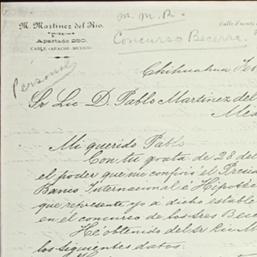 M. Martinez del Rio.
Apartado 250.
CABLE "APACHE" MEXICO.
M. M. R.
Calle
Concurso Becerra.
Personal
Chihuahua
Sr Lic. D. Pablo Martinez del
Mi querido Pablo
Con tu grata de 28 del
el poder que me confirió el Presid
Banco Internacional é Hipotec
que represente yo á dicho estable
en el concurso de los tres Bece
He obtenido del Sr
los siguientes datos: